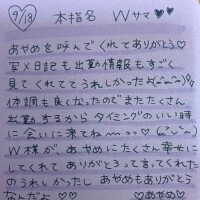 9/18 本指名 Wサマ♡
あやめを呼んでくれてありがとう♡
写メ日記も出勤情報もすごく
見てくれててうれしかった
体調も良くなったのでまたたくさん
出勤するからタイミングのいい時
に会いに来てね〜っっ♡
W様が あやめにたくさん幸せに
してくれて ありがとうって言ってくれた
のうれしかったし あやめもありがとう
なんだよ ♡あやめ♡